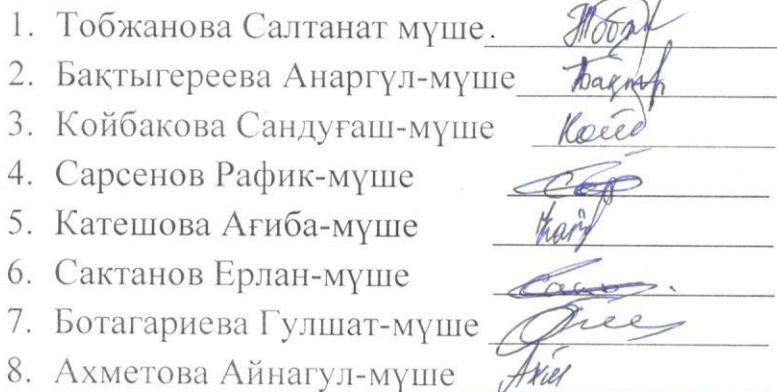 1. Тобжанова Салтанат мүше.
2. Бақтыгереева Анаргүл-мүше
3. Койбакова Сандуғаш-мүше
4. Сарсенов Рафик-мүше
5. Катешова Ағиба-мүше
6. Сактанов Ерлан-мүше
7. Ботагариева Гулшат-мүше
8. Ахметова Айнагул-мүше